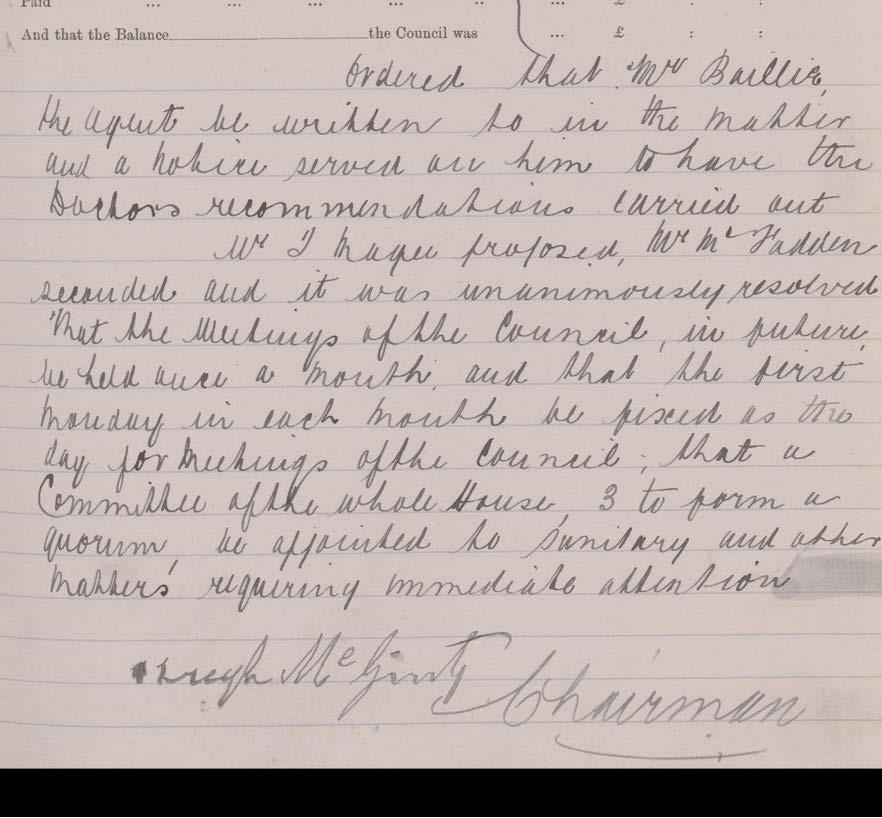 Paid ... ... ... ... .. ... £ : :
And that the Balance the Council was ... £ : :
Ordered that Mr Baillie,
the Agent be written to in the matter
and a notice served on him to have the
Doctors recommendations carried out
Mr J Magee proposed, Mr McFadden
seconded and it was unanimously resolved
That the Meetings of the Council, in future,
be held once a month, and that the first
Monday in each month be fixed as the
day for Meetings of the Council; that a
Committee of the whole House, 3 to form a
quorum, be appointed to Sanitary and other
matters requering immediate attention
Hugh McGinty
Chairman